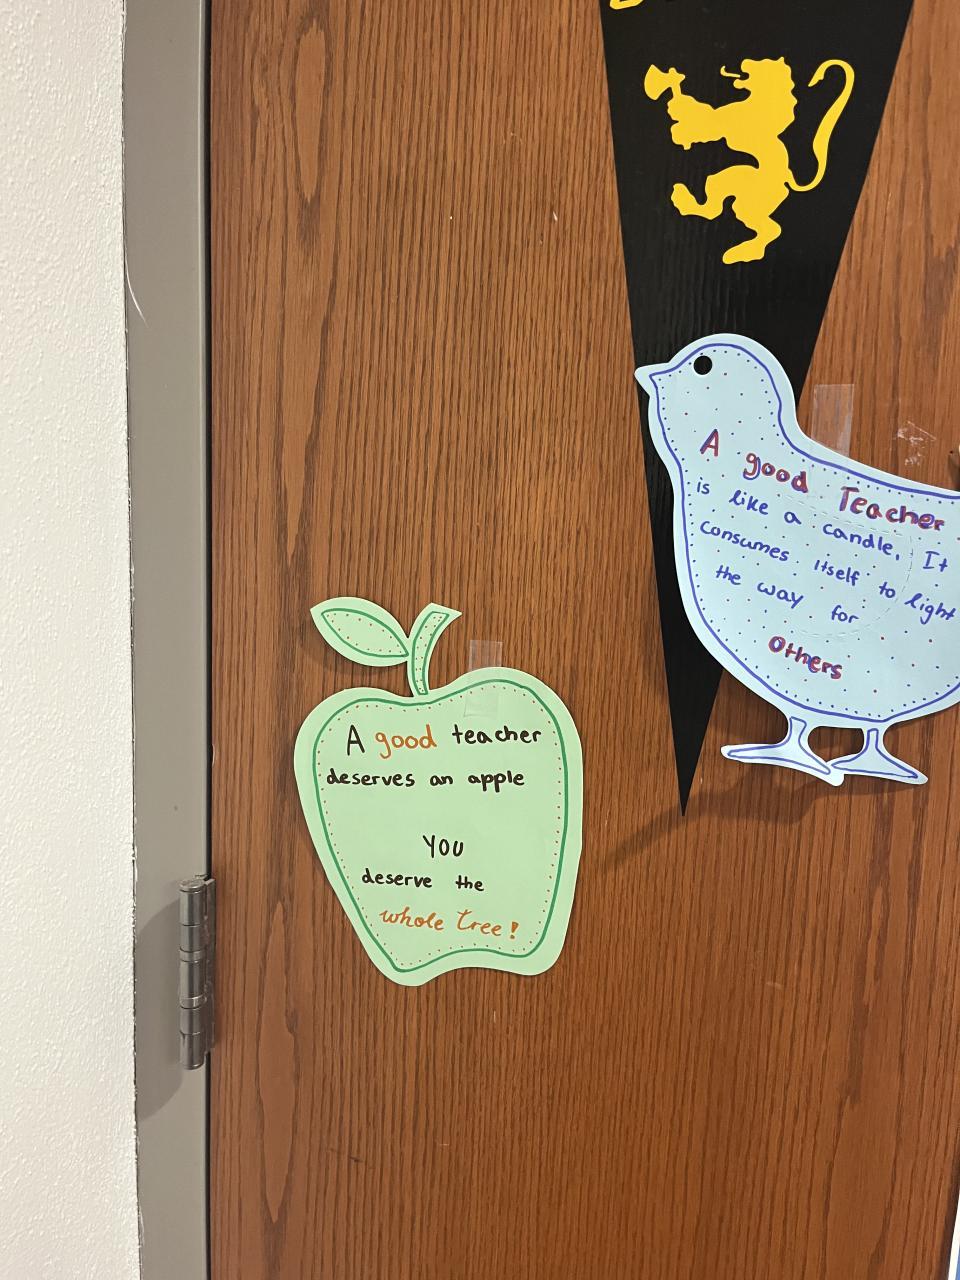 A good Teacher
is like a candle, It
consumes itself to light
the way for
Others
A good teacher
deserves an apple
YOU
deserve the
whole tree!